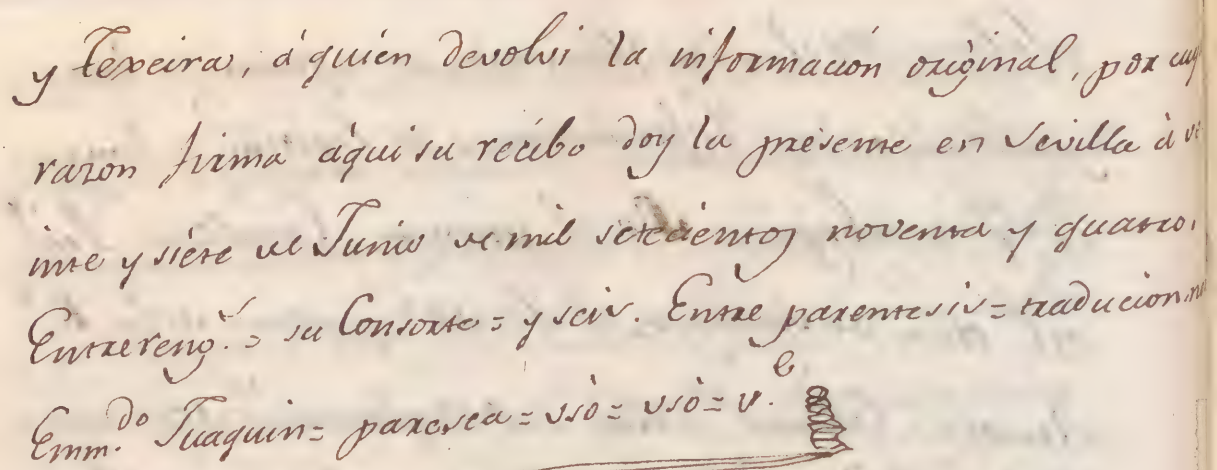 y Texeira, á quien devolvi la información original, por cuy
razon firma aqui su recibo doy la presente en Sevilla à ve
inte y siete de Junio de mil setecientos noventa y quatro.
Entrereng.^s = su Consorte = y seis. Entre parentesis = traducion
Emm.^do Juaquin = paresca = usò = usò = v.^e